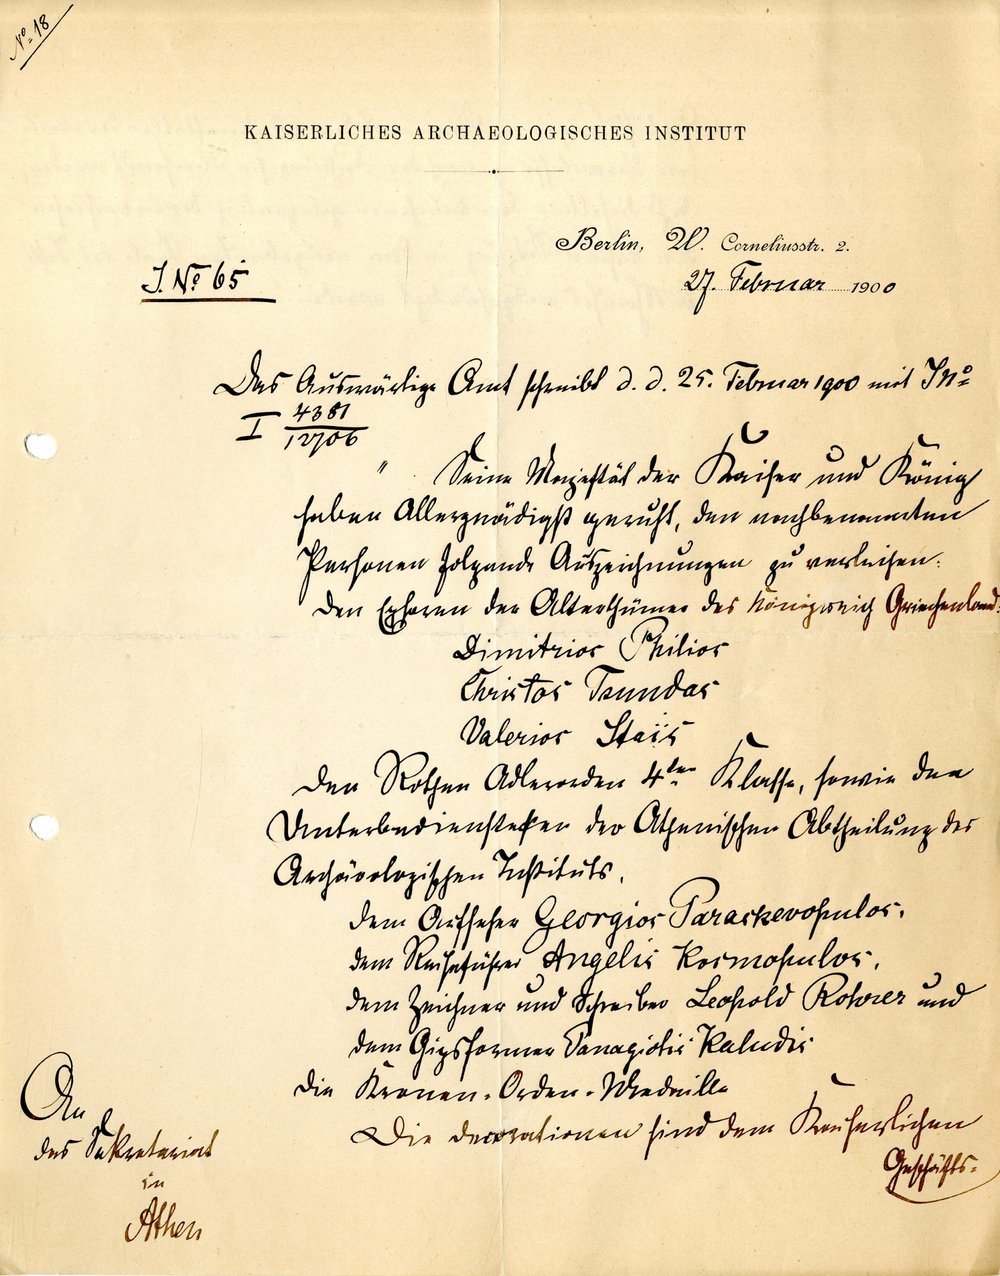 No. 18
KAISERLICHES ARCHAEOLOGISCHES INSTITUT
Berlin, W. Corneliusstr. 2.
J. No 65
27. Februar 1900
Das Auswärtige Amt schreibt d. d. 25. Februar 1900 mit J No
I 4381
12706
" Seine Majestät der Kaiser und König
haben Allergnädigst geruht, den nachbenannten
Personen folgende Auszeichnungen zu verleihen:
den Ephoren der Alterthümer des Königreich Griechenland:
Dimitrios Philios
Christos Tsundas
Valerios Staïs
den Rothen Adlerorden 4ter Klasse, sowie den
Unterbediensteten der Athenischen Abtheilung des
Archäologischen Instituts,
dem Aufseher Georgios Paraskevopulos,
dem Reiseführer Angelis Kosmopulos,
dem Zeichner und Schreiber Leopold Rohrer und
dem Gipsformer Panagiotis Kaludis
die Kronen-Orden-Medaille
Die Decorationen sind dem Kaiserlichen
Geschäfts-
An
das Sekretariat
in
Athen